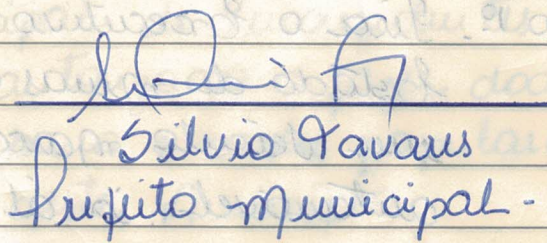 Silvio Tavares
Prefeito Municipal-